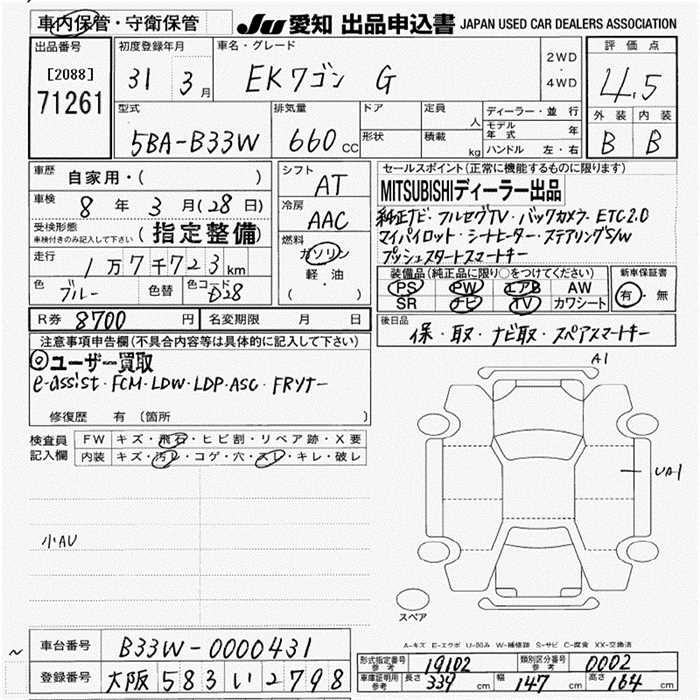 車内保管・守衛保管 JU 愛知 出品申込書 JAPAN USED CAR DEALERS ASSOCIATION
出品番号 初度登録年月 車名・グレード 評価点
[2088] 71261 31 3月 EKワゴン G 2WD・4WD 4.5
型式 排気量 ドア 定員 人 ディーラー・並行 外装 内装
5BA-B33W 660cc 形状 積載 kg モデル年式 年 B B
ハンドル 左・右
車歴 自家用・( ) シフト AT セールスポイント(正常に機能するものに限ります)
MITSUBISHIディーラー出品
車検 8年3月(28日) 冷房 AAC
純正ナビ・フルセグTV・バックカメラ・ETC2.0
受検形態 車検付きのみ記入して下さい (指定整備)
マイパイロット・シートヒーター・ステアリングS/W
燃料 ガソリン 軽油 ( )
プッシュスタートスマートキー
走行 1万7千723km 装備品(純正品に限り○をつけてください) 新車保証書
色 ブルー 色替 色コード D28 PS PW エアB AW 有・無
SR ナビ TV カワシート
R券 8700円 名変期限 月 日 後日品
保・取・ナビ取・スペアスマートキー
注意事項申告欄(不具合内容等は具体的に記入して下さい)
◎ユーザー買取
e-assist・FCM・LDW・LDP・ASC・FRソナー
修復歴 有(箇所 )
検査員記入欄 FW キズ・飛石・ヒビ割・リペア跡・X要
内装 キズ・汚レ・コゲ・穴・スレ・キレ・破レ
A1
UA1
小AU
スペア
A-キズ E-エクボ U-凹み W-補修跡 S-サビ C-腐食 XX-交換済
~ 車台番号 B33W-0000431
形式指定番号 参考 19102 類別区分番号 参考 0002
登録番号 大阪 583 い 2798
車庫証明用 参考 長さ 339cm 幅 147cm 高さ 164cm